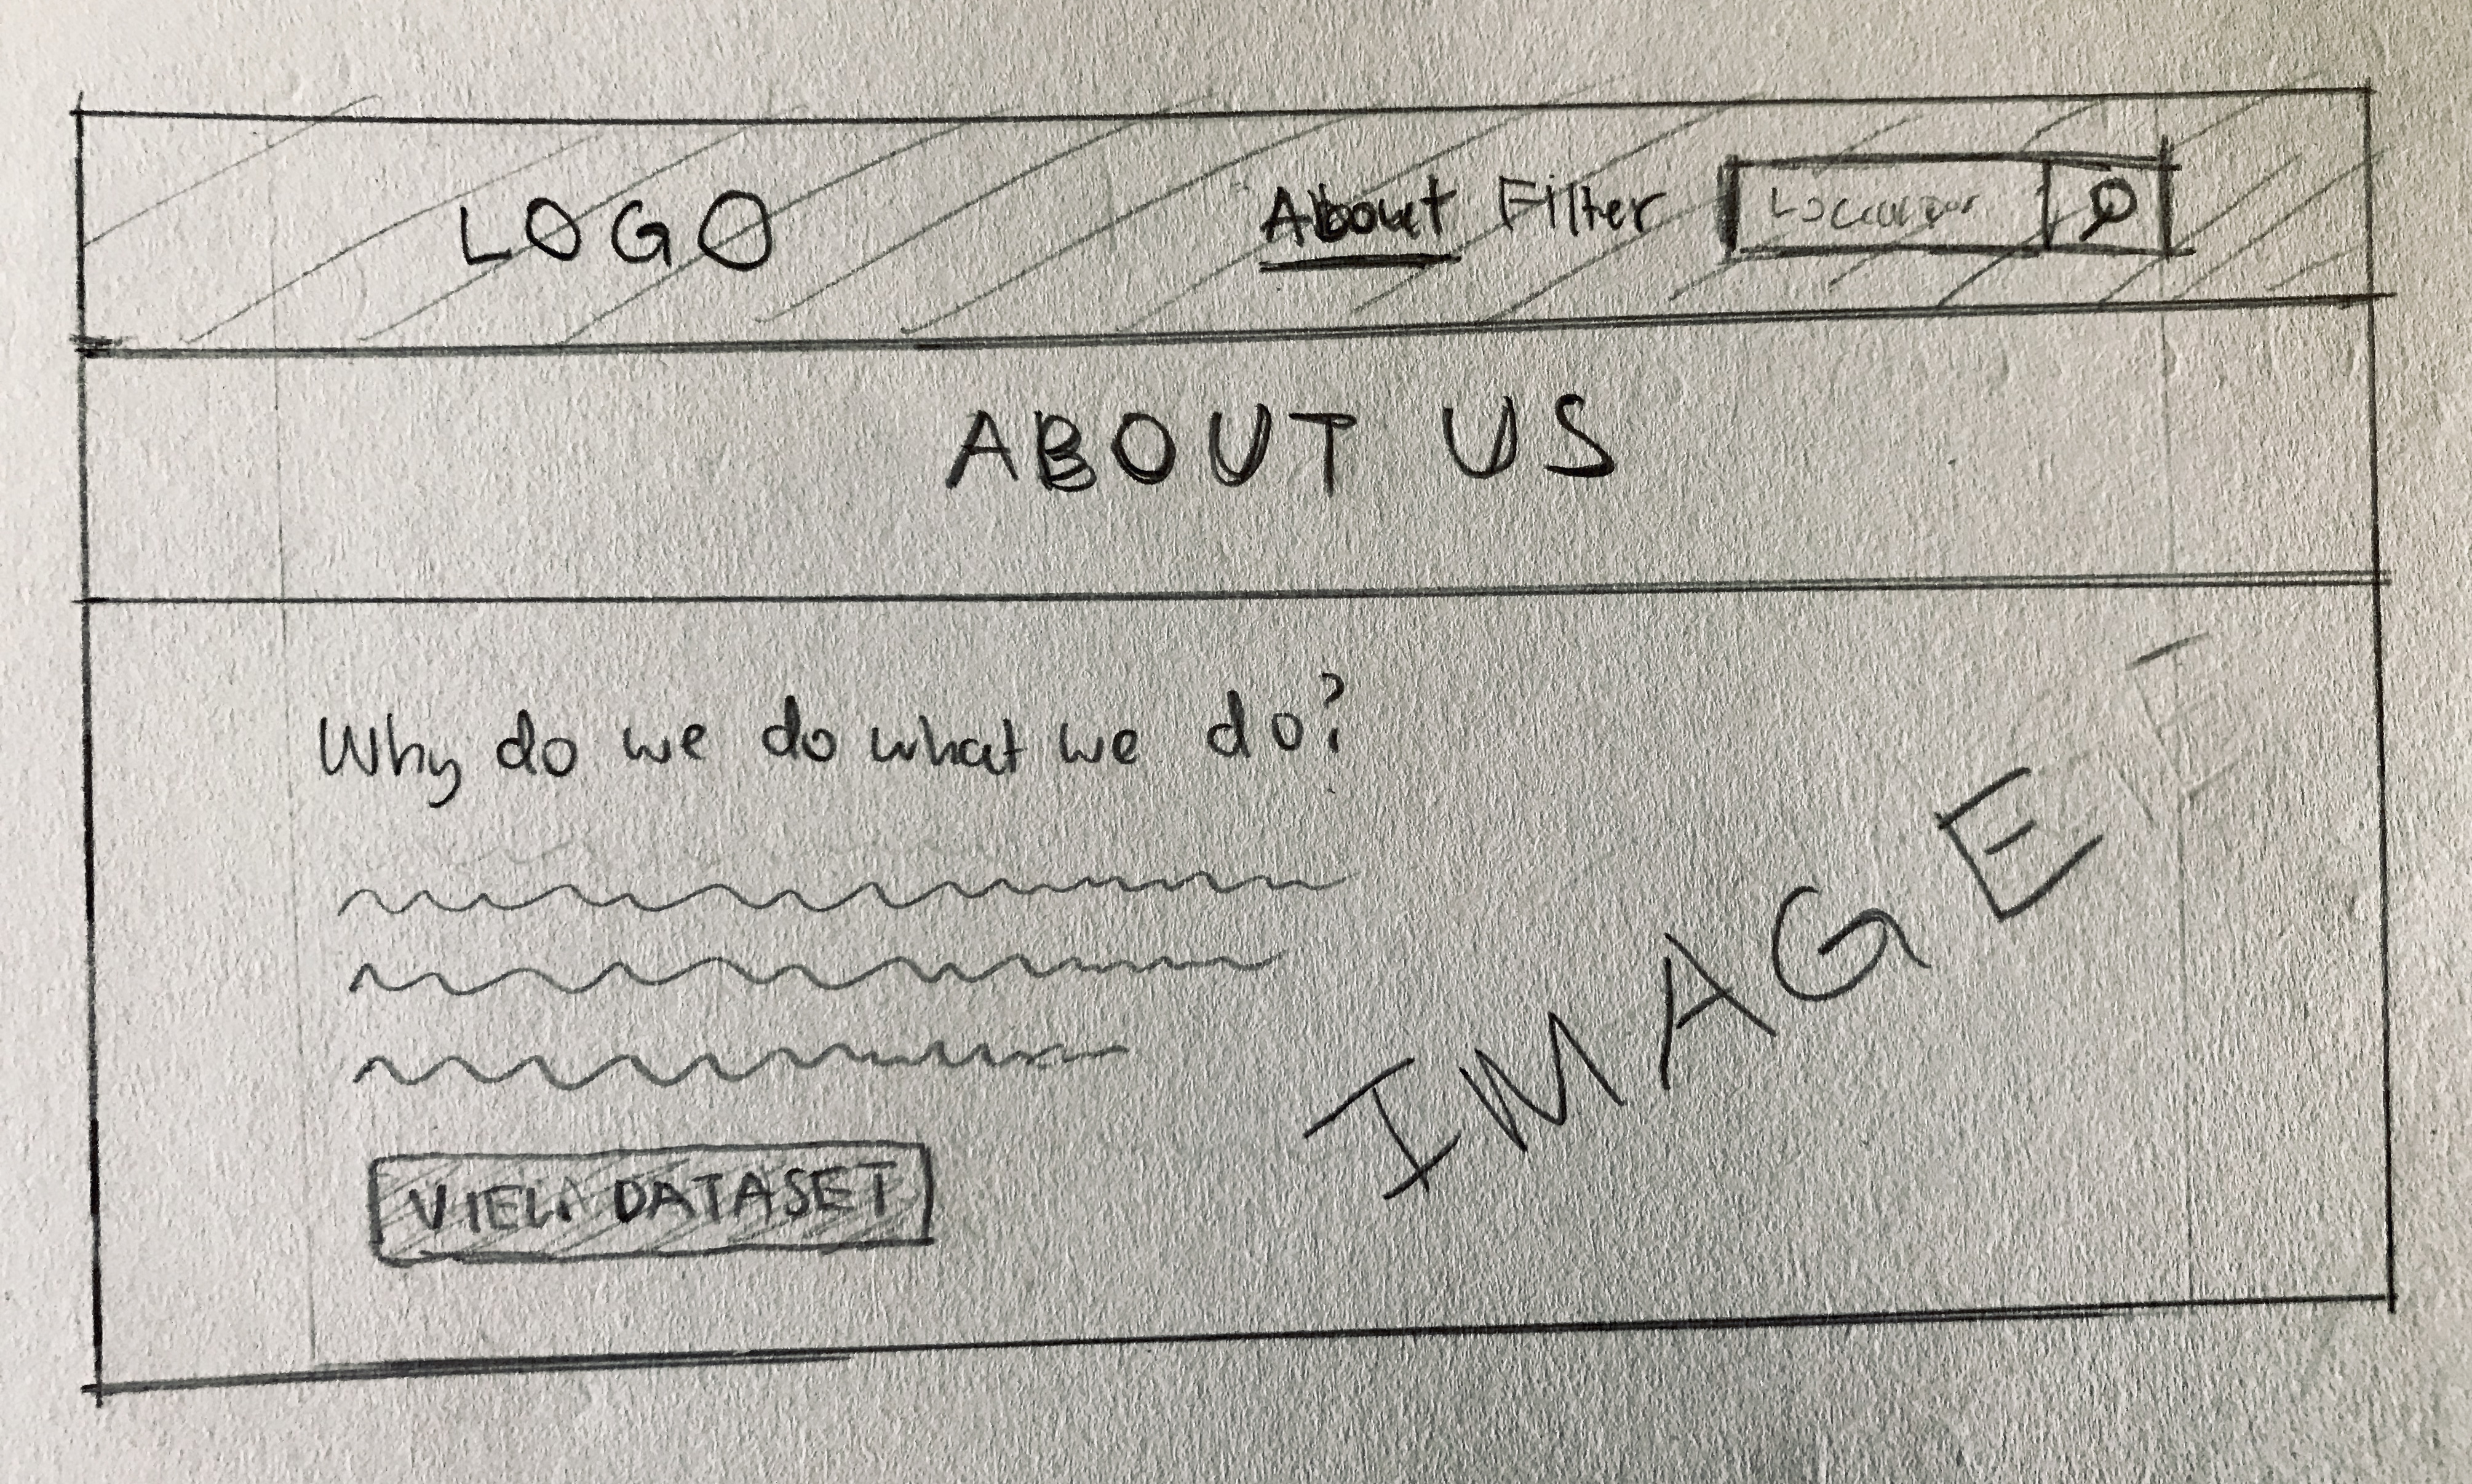 LOGO About Filter Location
ABOUT US
Why do we do what we do?
IMAGE
VIEW DATASET